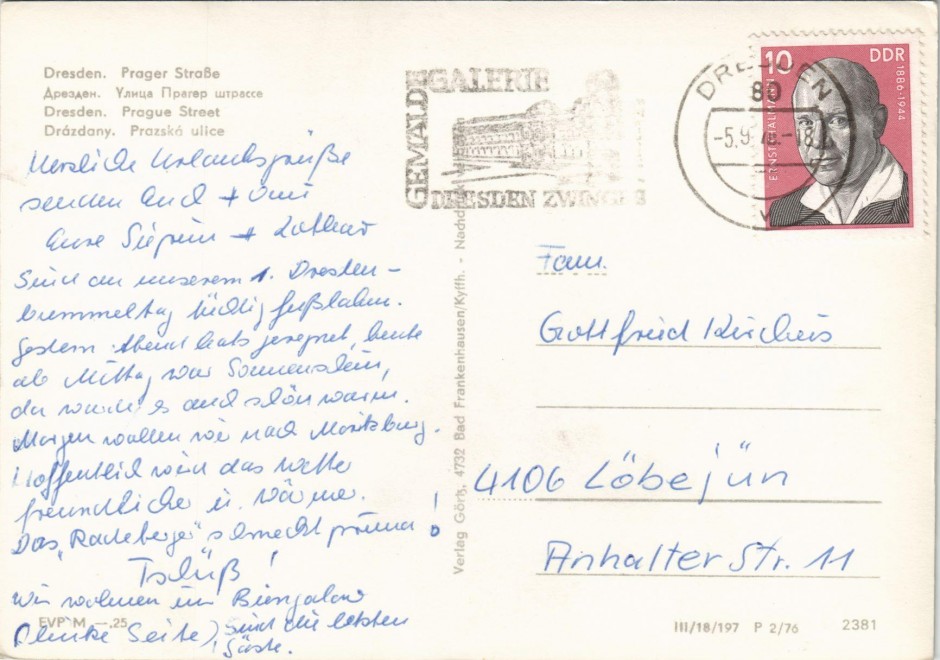 Dresden. Prager Straße
Дрезден. Улица Прагер штрассе
Dresden. Prague Street
Drázdany. Prazská ulice
GEMÄLDEGALERIE
DRESDEN ZWINGER
DRESDEN
80
-5.9.76.-18
10 DDR
ERNST THÄLMANN
1886-1944
Herzliche Urlaubsgrüße
senden Euch +
Eure + Lothar
Sind an unserem 1. Dresden-
bummeltag tüchtig gelaufen.
Gestern Abend hats geregnet, heute
ab Mittag war Sonnenschein,
da wurde es auch schön warm.
Morgen wollen wir nach Moritzburg.
Hoffentlich wird das Wetter
freundlicher u. wärmer.
Das "Radeberger" schmeckt prima!
Tschüß!
Wir wohnen im Bungalow
(linke Seite), Sind die letzten
Gäste.
EVP M -.25
Verlag Görtz, 4732 Bad Frankenhausen/Kyffh. - Nachd
Fam.
Gottfried Kircheis
4106 Löbejün
Anhalter Str. 11
III/18/197 P 2/76 2381